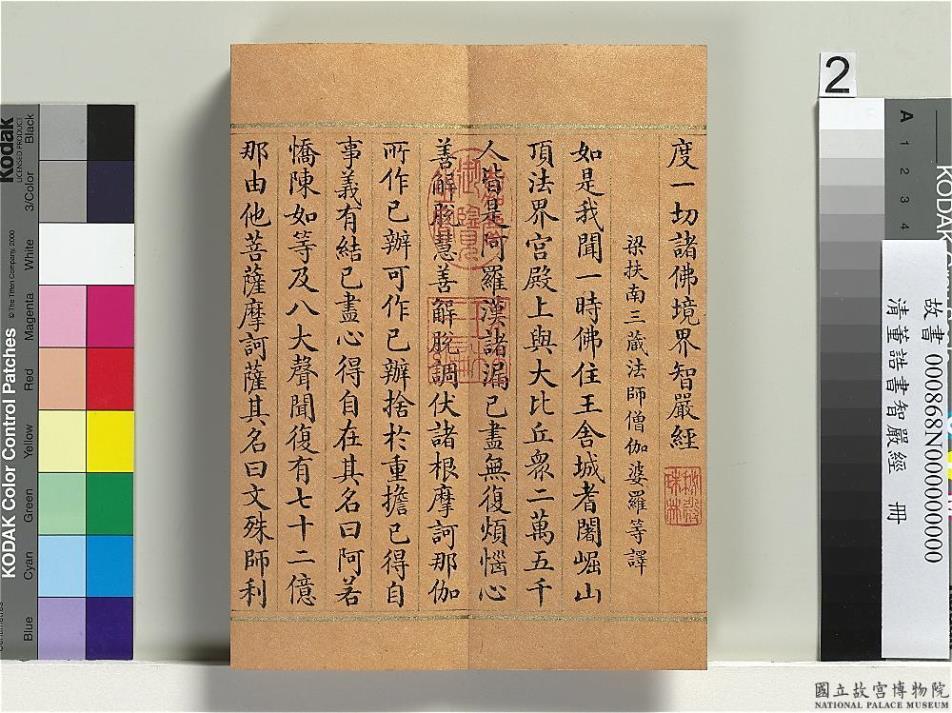 度一切諸佛境界智嚴經
梁扶南三藏法師僧伽婆羅等譯
如是我聞一時佛住王舍城耆闍崛山
頂法界宮殿上與大比丘眾二萬五千
人皆是阿羅漢諸漏已盡無復煩惱心
善解脫慧善解脫調伏諸根摩訶那伽
所作已辦可作已辦捨於重擔已得自
事義有結已盡心得自在其名曰阿若
憍陳如等及八大聲聞復有七十二億
那由他菩薩摩訶薩其名曰文殊師利
秘殿
珠林
2
故書 000868N000000000
清董誥書智嚴經 冊
Kodak
LICENSED PRODUCT
KODAK Color Control Patches
© The Tiffen Company, 2000
Blue
Cyan
Green
Yellow
Red
Magenta
White
3/Color
Black
A
1
2
3
4
KODAK
國立故宮博物院
NATIONAL PALACE MUSEUM